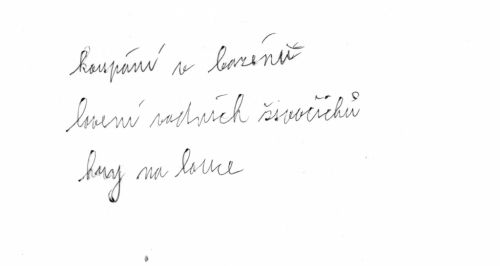 koupání v bazénu
lovení vodních živočichů
hry na louce